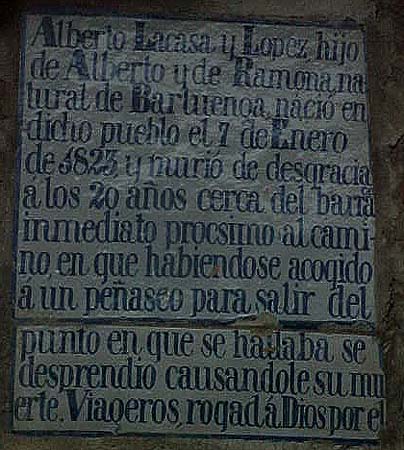 Alberto Lacasa y Lopez, hijo
de Alberto y de Ramona, na
tural de Barluenga, nácio en
dicho pueblo el 7 de Enero
de 1823, y murio de desgracia
a los 20 años cerca del barra
inmediato procsimo al cami-
no en que habiendose acogido
a un peñasco para salir del
punto en que se hallaba se
desprendio causandole su mu
erte. Viageros, rogad á Dios por el